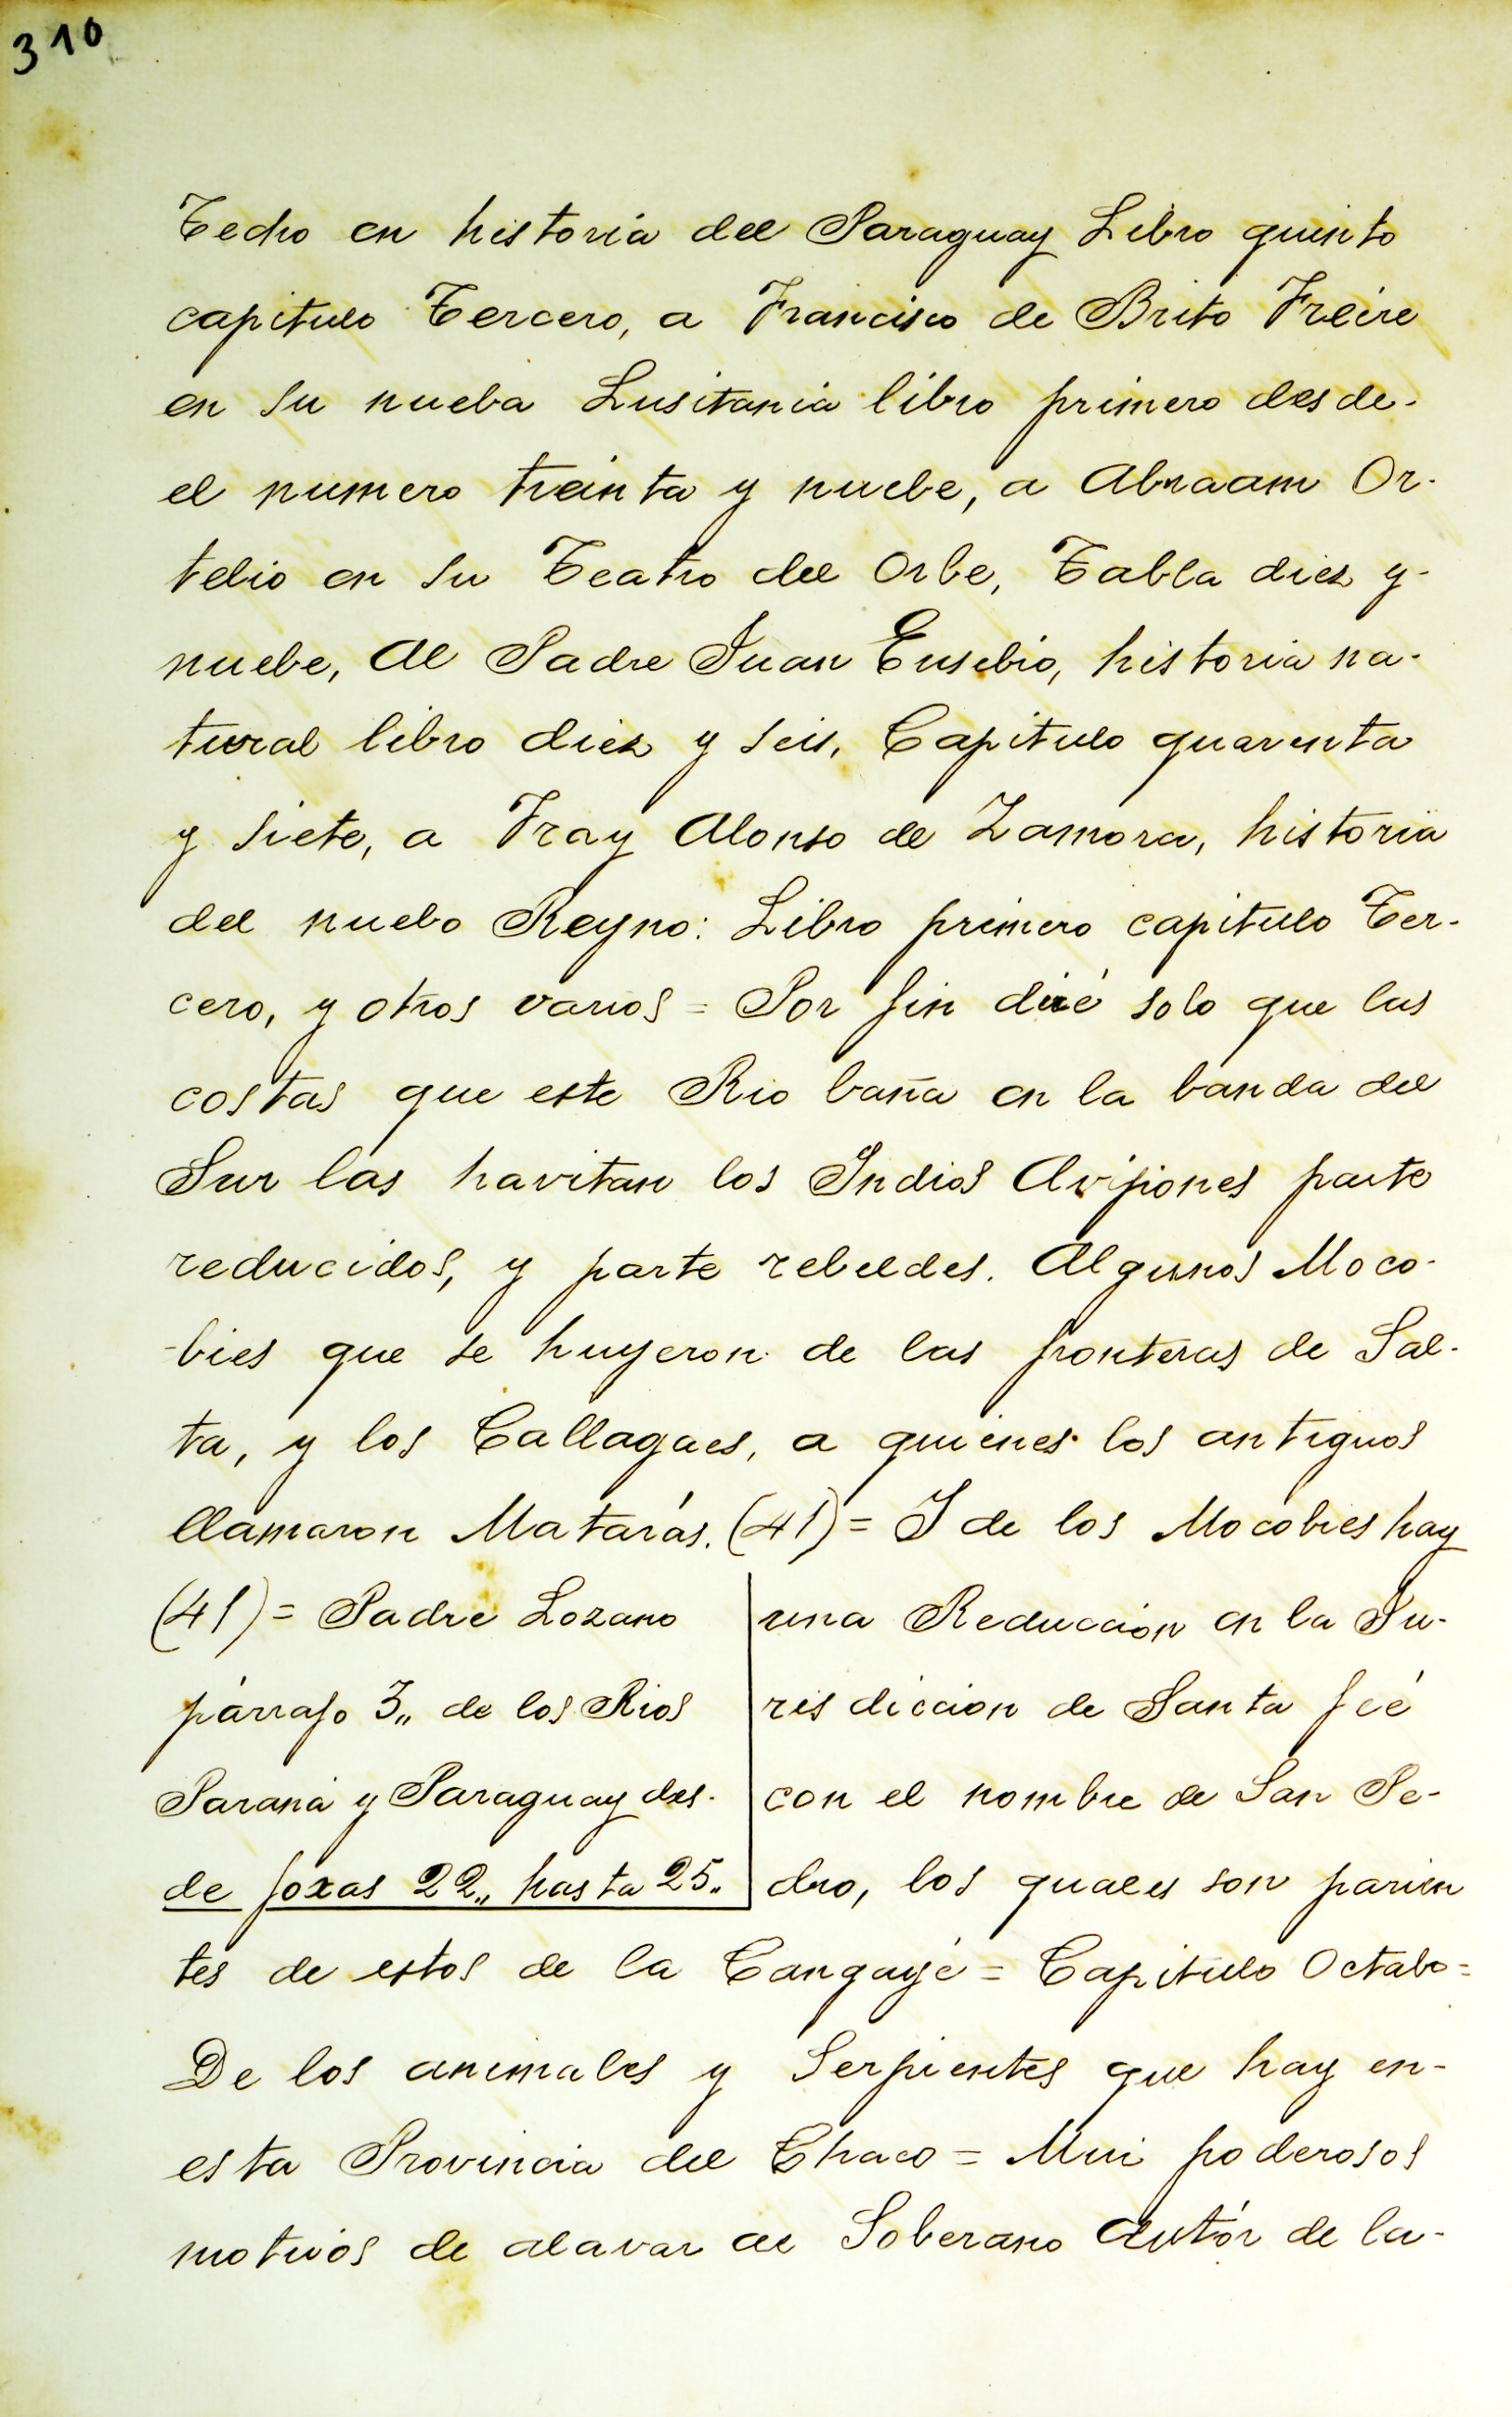 310
Techo en historia del Paraguay Libro quinto
capitulo Tercero, a Francisco de Brito Freire
en su nueba Lusitania libro primero desde-
el numero treinta y nuebe, a Abraam Or-
telio en su Teatro del Orbe, Tabla diez y-
nuebe, Al Padre Juan Eusebio, historia na-
tural libro diez y seis, Capitulo quarenta
y siete, a Fray Alonso de Zamora, historia
del nuebo Reyno: Libro primero capitulo Ter-
cero, y otros varios = Por fin diré solo que las
costas que este Rio baña en la banda del
Sur las havitan los Indios Avipones parte
reducidos, y parte rebeldes. Algunos Moco-
-bies que se huyeron de las fronteras de Sal-
ta, y los Callagaes, a quienes los antiguos
llamaron Matarás. (41) = I de los Mocobies hay
(41) = Padre Lozano
párrafo 3,, de los Rios
Paraná y Paraguay des-
de foxas 22,, hasta 25,,
una Reduccion en la Ju-
risdiccion de Santa feé
con el nombre de San Pe-
dro, los quales son parien
tes de estos de la Cangayé = Capitulo Octabo=
De los animales y Serpientes que hay en-
esta Provincia del Chaco = Mui poderosos
motivos de alavar al Soberano Autór de la-